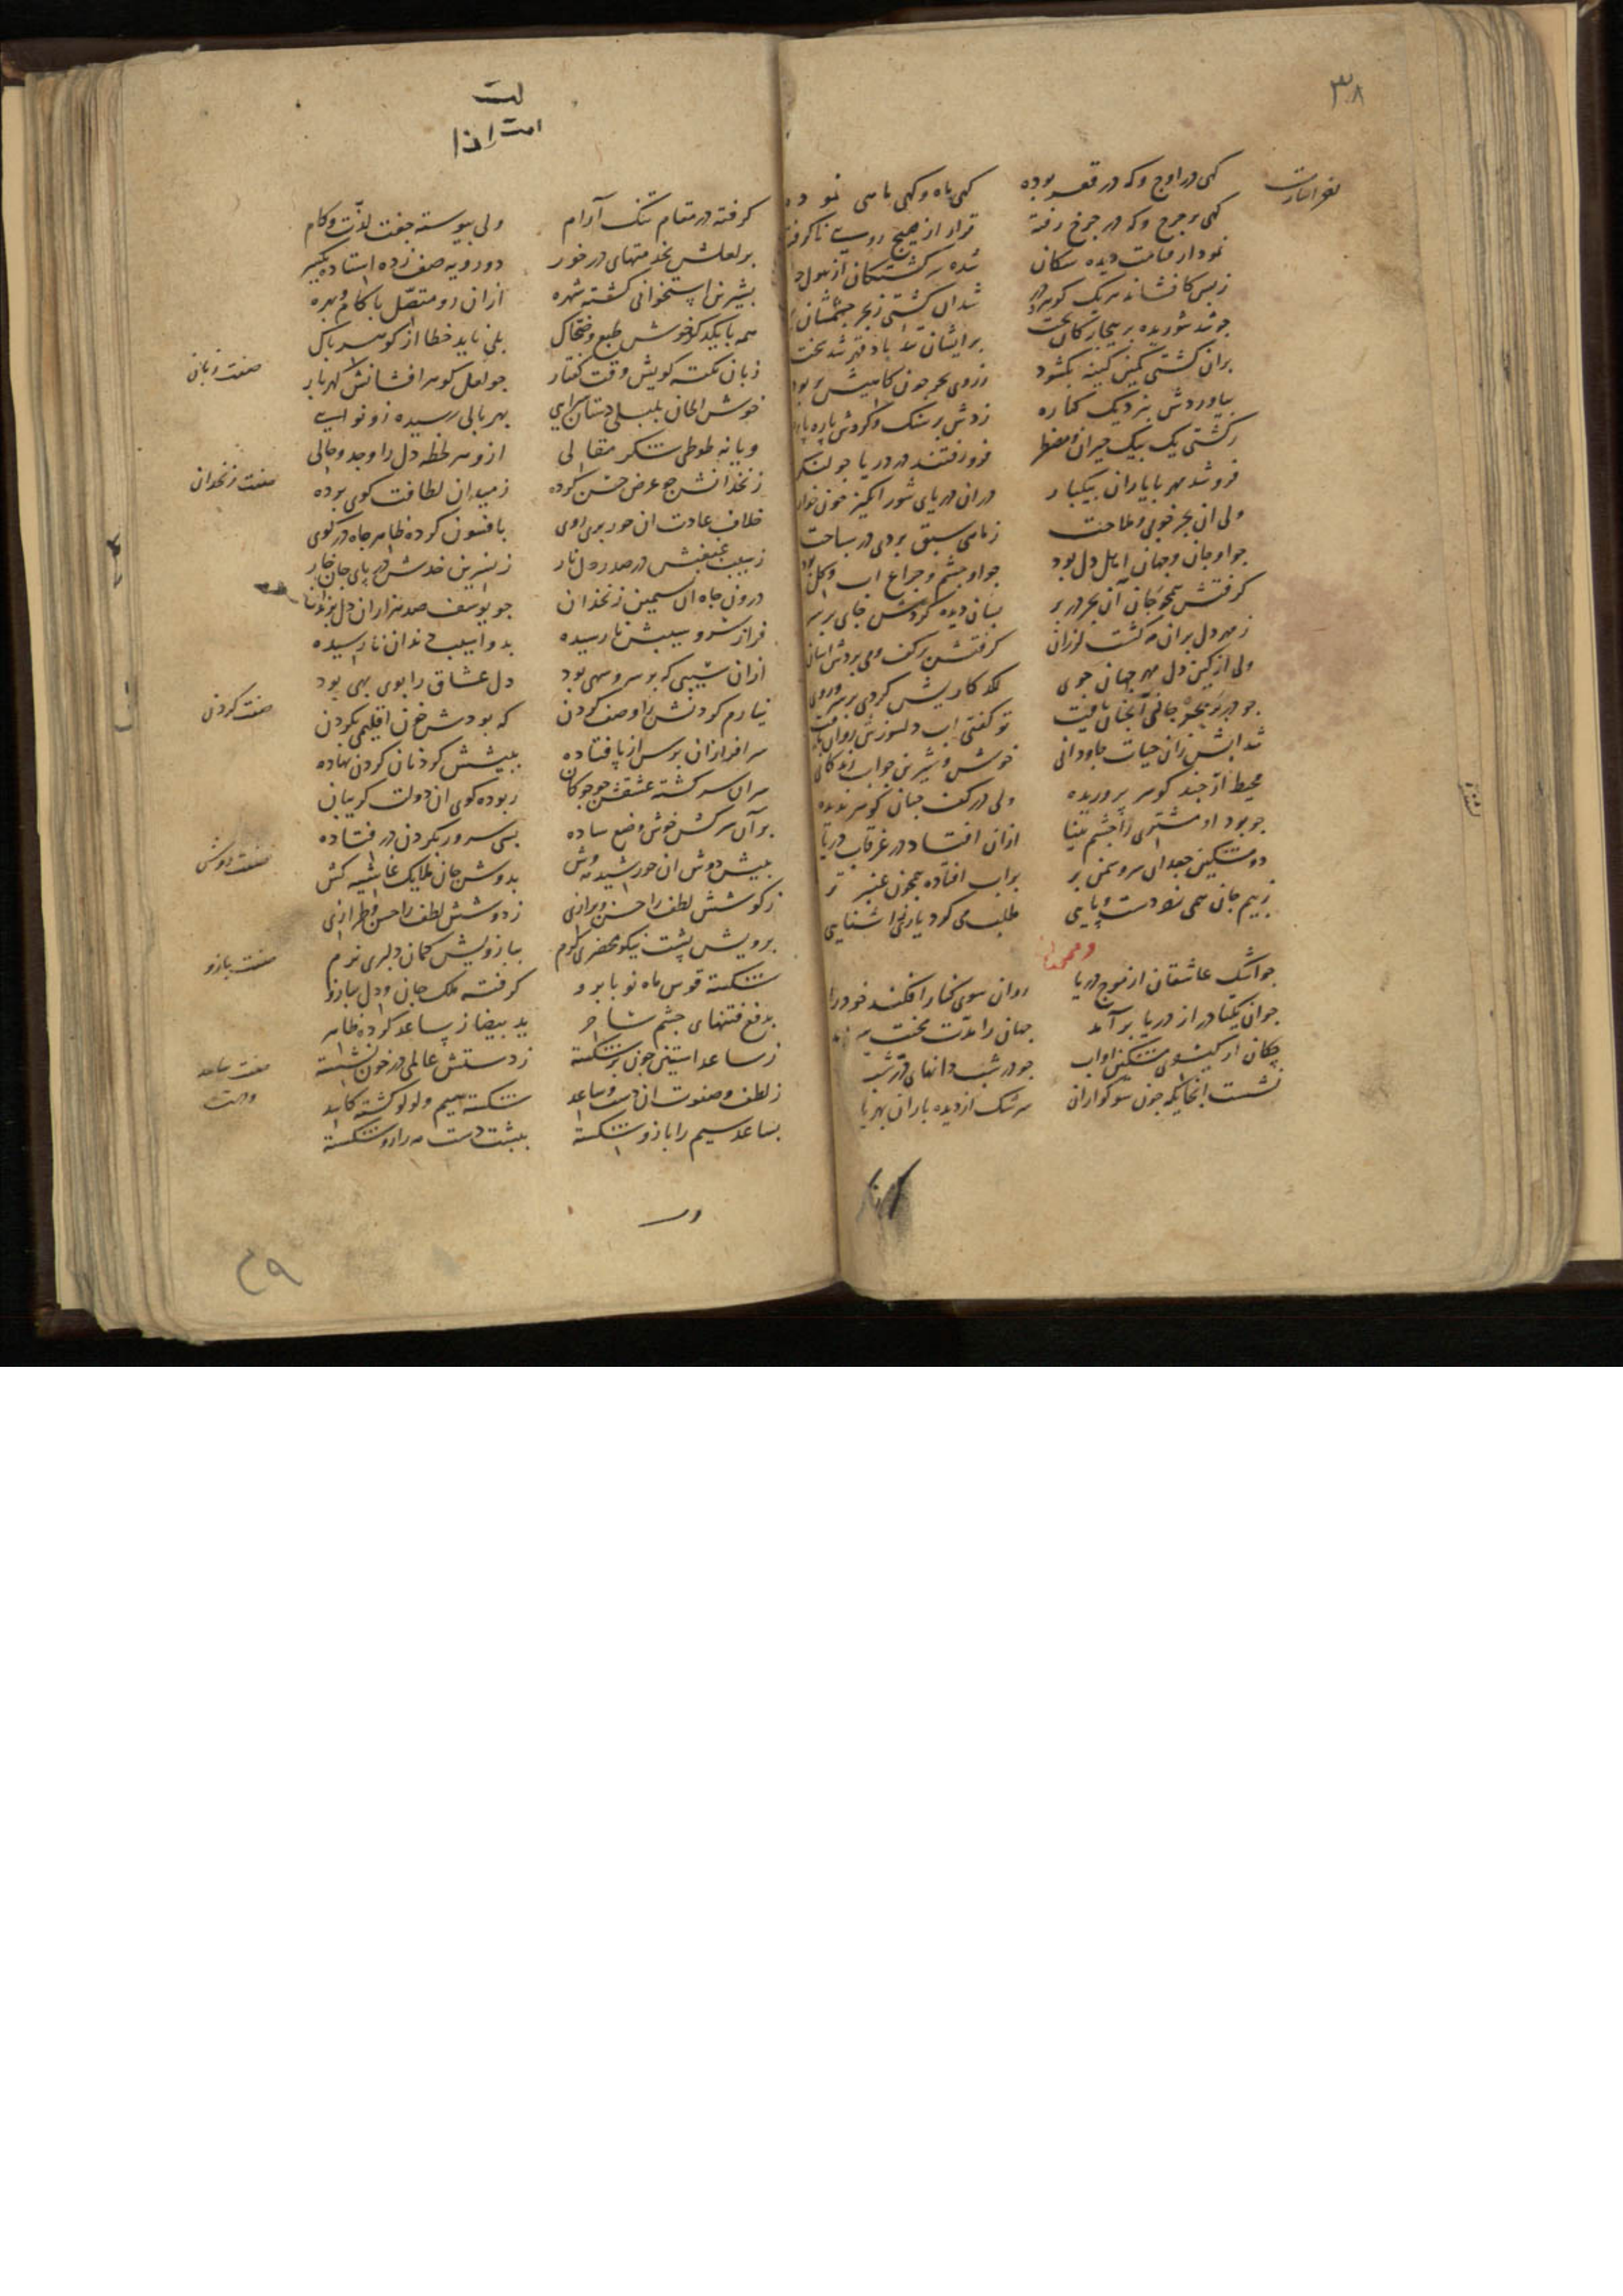 ۳۸
کهی در اوج و که در قعر بوده کهی ماه و کهی ماهی نموده
کهی بر چرخ و که در چرخ رفته قرار از هیچ روی ناکرفته
نمودار قیامت دیده سکان شده سرکشتکان از هول
شد آن کشتی ز بحر چشمشان
چو شد شوریده بر بیچارکان بخت بر ایشان تند باد قهر شد سخت
بران کشتی کمین کینه بکشود ز روی بحر چون کاهیش بربود
بیاوردش بنزدیک کناره زدش بر سنک و کردش پاره پاره
ز کشتی یک بیک حیران و مضطر فرو رفتند در دریا چو لنکر
فرو شد مهر با یاران بیکبار در آن دریای شور انکیز خون خوار
ولی آن بحر خوبی و ملاحت ز ماهی سبق بردی در سباحت
چو او جان و جهان اهل دل بود چو او چشم و چراغ آب و کل بود
کرفتش همچو جان آن بحر در بر بسان دیده کردش جای بر سر
ز مهر دل بران مه کشت لرزان کرفتش بر کف و می بردش آسان
ولی از کین دل مهر جهان جوی لکد کاریش کردی بر سر و روی
چو در بحر جانی آنچنان یافت تو کفتی آب دلسوزش روان یافت
شد آبش زان حیات جاودانی خوش و شیرین چو آب زندکانی
محیط ار چند کوهر پروریده ولی در کف چنان کوهر ندیده
چو بود او مشتری را چشم بینا ازان افتاد در غرقاب دریا
دو مشکین جعد آن سرو سمن بر بر آب افتاده همچون عنبر تر
ز بیم جان همی زد دست و پایی طلب می کرد یاری آشنایی
چو اشک عاشقان از موج دریا روان سوی کنار افکند خود را
چو آن یکتا در از دریا بر آمد جهان را مدت محنت سر آمد
چکان از کیسوی مشکین او آب چو در شب دانهای در
نشست آنجایکه چون سوکواران سرشک از دیده باران بهر یاران
کرفته در مقام تنک آرام ولی پیوسته جفت لذت و کام
بر لعلش بخدمتهای در خور دو رویه صف زده استاده
بشیرین استخوانی کشته شهره ازان رو متصل با کام و بهره
همه با یکدکر خوش طبع و ضحاک بلی ناید خطا از کوهر پاک
صفت زبان
زبان نکته کویش وقت کفتار چو لعل کوهر افشانش کهربار
خوش الحان بلبلی دستان سرای بهر بالی رسیده زو نوایی
و یا نه طوطی شکر مقالی ازو هر لحظه دل را وجد و حالی
صفت زنخدان
زنخدانش چو عرض حسن کرده ز میدان لطافت کوی برده
خلاف عادت آن حور پری روی بافسون کرده ظاهر چاه در کوی
ز سیب غبغبش در صد ر دل نار ز نسرین خدش در پای جان خار
درون چاه آن سیمین زنخدان چو یوسف صد هزاران دل بزندان
فراز سرو سیبش نارسیده بدو آسیب دندان نارسیده
ازان سیبی که بر سرو سهی بود دل عشاق را بوی بهی بود
صفت کردن
نیارم کردنش را وصف کردن که بودش خون اقلیمی بکردن
سر افرازان بس از پا فتاده به پیشش کردنان کردن نهاده
سران سرکشته عشقش چو چوکان ربوده کوی آن دولت کریبان
بر آن سرکش خوش وضع ساده بسی سرور بکردن در فتاده
صفت دوش
به پیش دوش آن خورشید مه وش بدوش جان ملایک غاشیه کش
ز کوشش لطف را حسن و برازی ز دوشش لطف را حسن و طرازی
برویش پشت نیکو محضری کرم ببازویش کمان دلبری نرم
صفت بازو
شکسته قوس ماه نو بابرو کرفته ملک جان و دل ببازو
بدفع فتنهای چشم ساحر ید بیضا ز ساعد کرده ظاهر
صفت ساعد
ز ساعد آستین چون بر شکسته ز دستش عالمی در خون نشسته
و دست
ز لطف و صفوت آن دست و ساعد شکسته سیم و لولو کشته کاسد
بساعد سیم را بازو شکسته به پشت دست مه را رو شکسته
۳۹